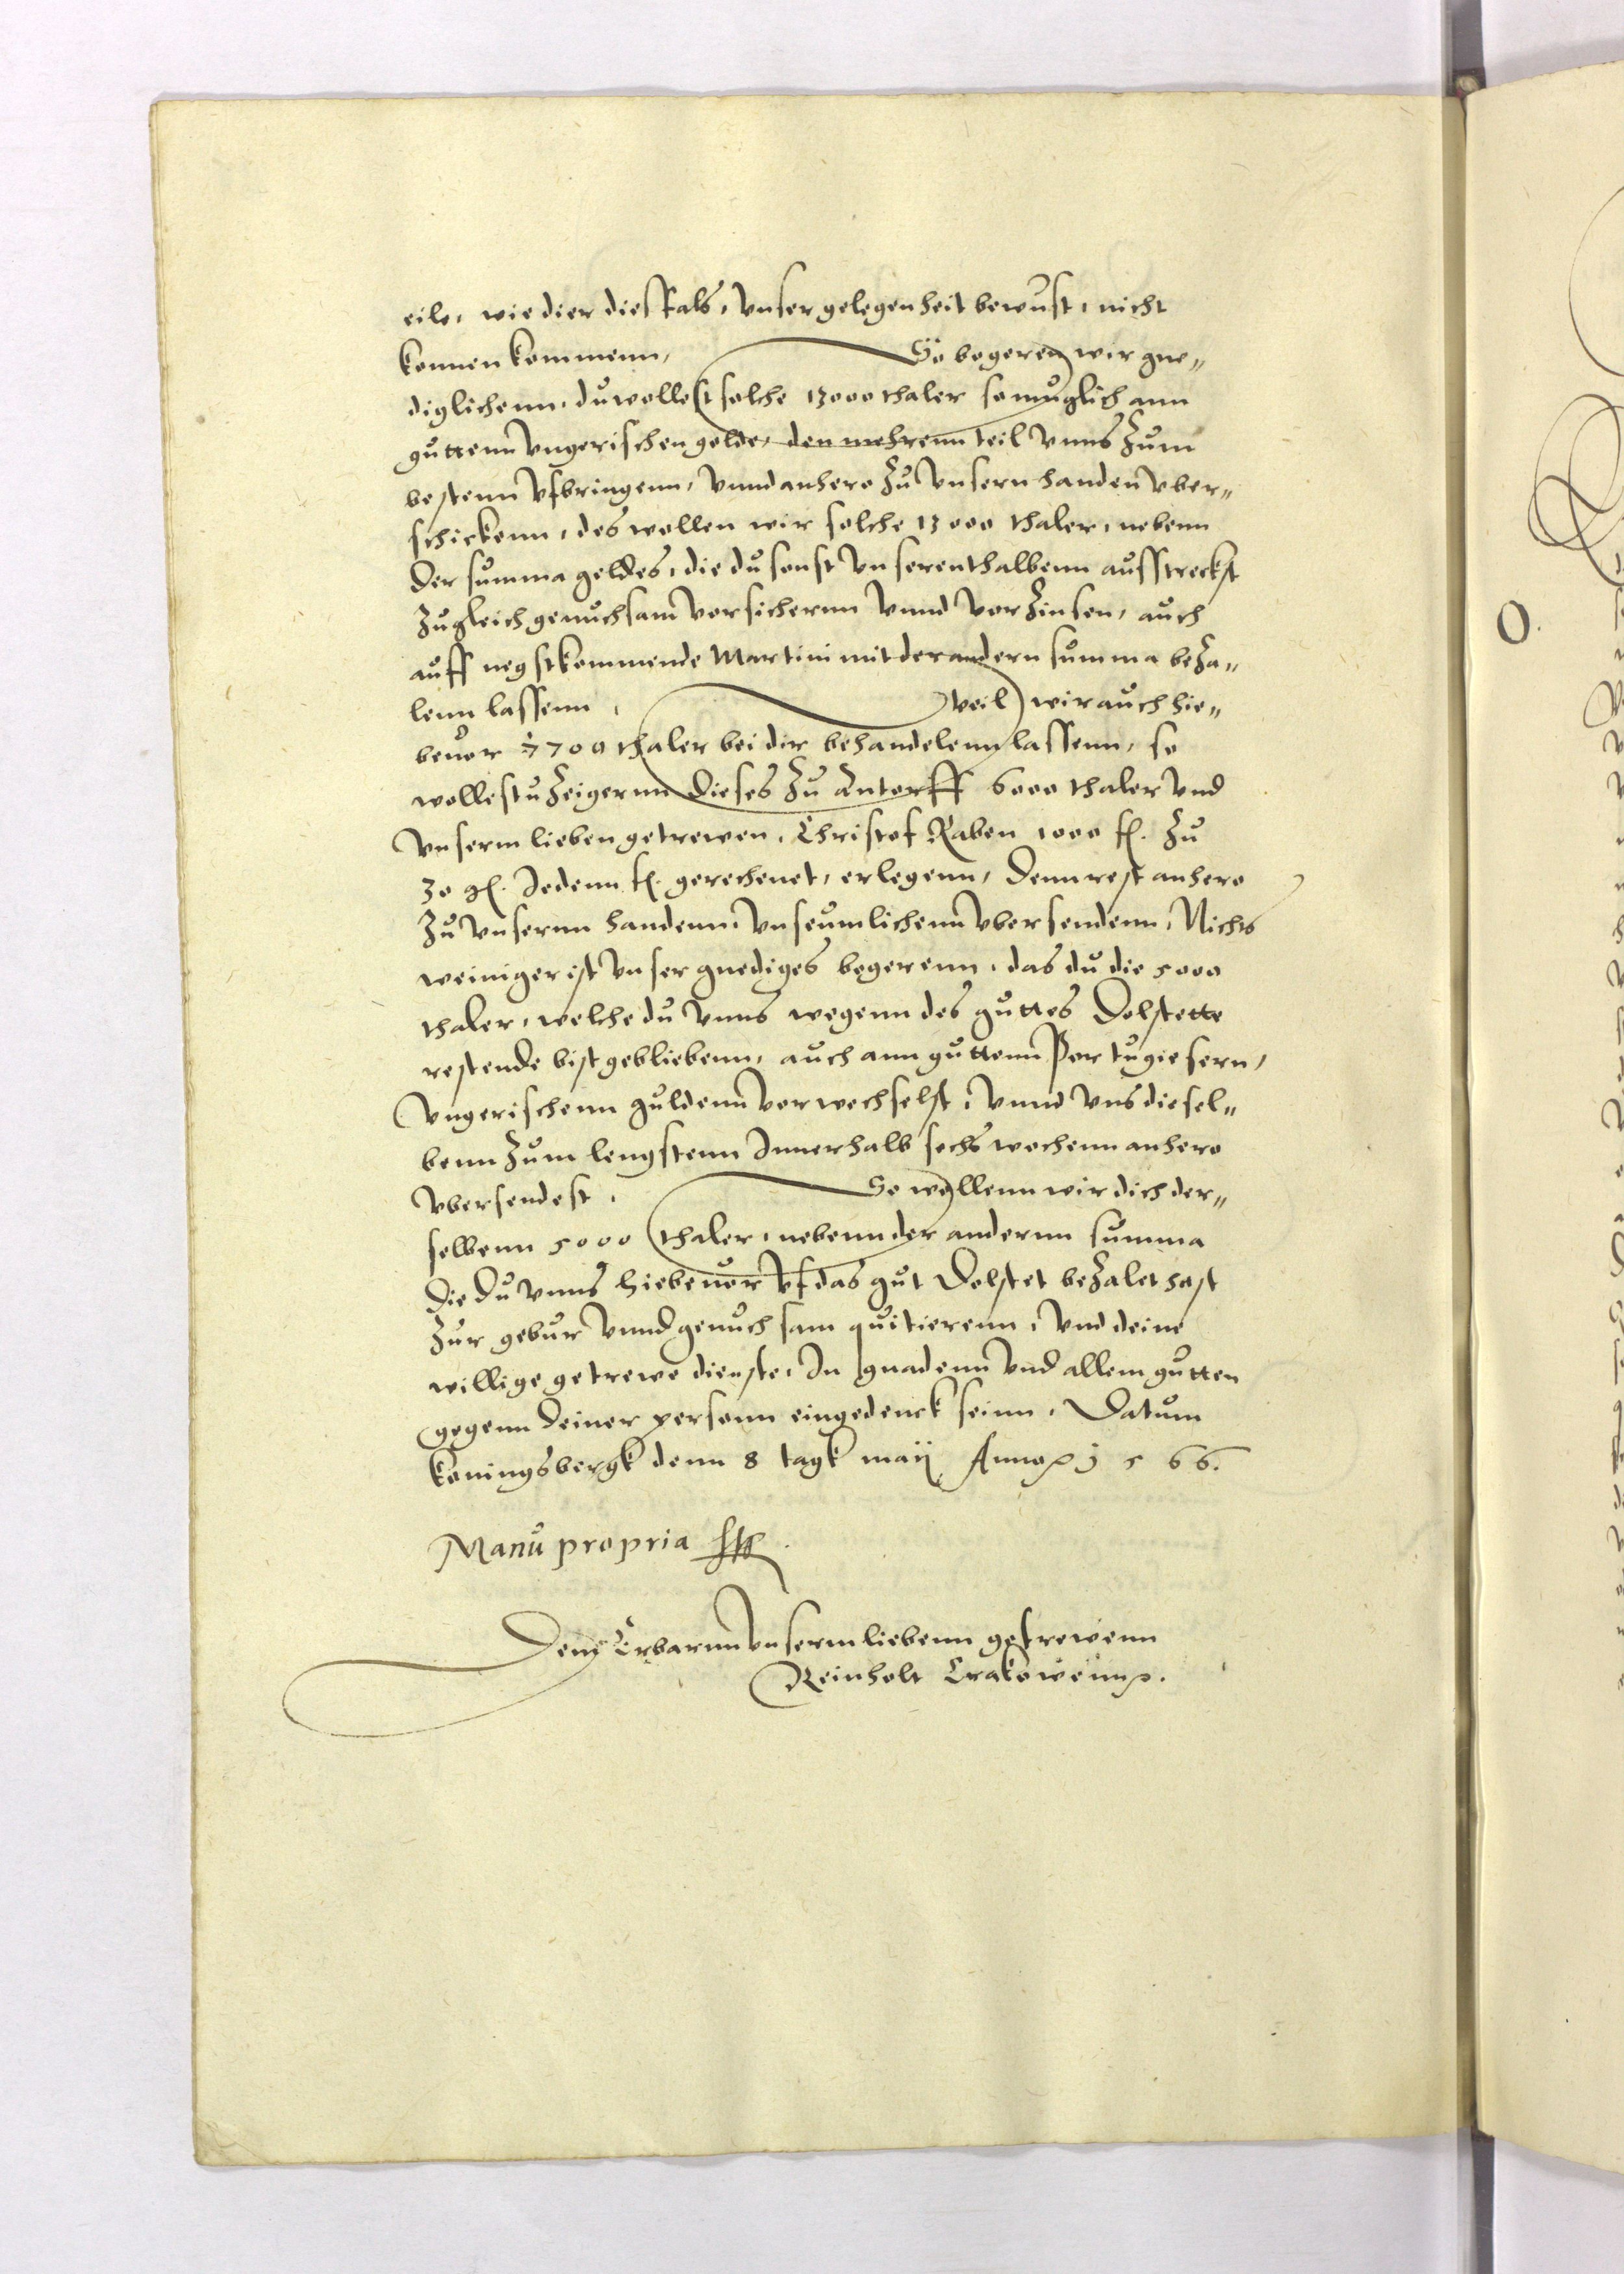 eile, wie dier diesfals, unser gelegenheit bewust, nicht
konnen kommenn, So begeren wir gne„
diglichenn, du wollest solche 13000 thaler so muglich ann
guttenn Ungerischen golde, den mehrenn teil unns zum
bestenn ufbringenn, unnd anhero zu unsern handen uber„
schickenn, des wollen wir solche 13000 thaler, nebenn
der summa geldes, die du sonst unserenthalbenn ausstreckst
zugleich genuchsam vorsichernn unnd vorzinsen, auch
auff negstkommende Martini mit der andern summa beza„
lenn lassenn, Weil wir auch hie„
bevor 7700 thaler bei dir behandelenn lassenn, so
wollestu zeigernn dieses zu Antorff 6000 thaler und
unserm lieben getrewen, Christof Raben 1000 fl. zu
30 gl. Jedenn fl. gerechenet, erlegenn, denn rest anhero
zu unsernn handenn, unseumlichenn ubersendenn, Nichts
weiniger ist unser gnediges begerenn, das du die 5000
thaler, welche du unns wegenn des guttes Dolstette
restende bist gebliebenn, auch ann guttenn Portugiesern,
Ungerischenn guldenn vorwechselst, unnd uns diesel„
benn zum lengstenn Innerhalb sechs wochenn anhero
ubersendest, So wollenn wir dich der„
selbenn 5000 thaler, nebenn der andernn summa
die du unns hiebevor uf das gut Dolstet bezalet hast
zur gebur unnd genuchsam quitierenn, und deine
willige getrewe dienste, In gnadenn und allem gutten
gegenn deiner personn eingedenck seinn, Datum
Koningsbergk denn 8 tagk maij Anno 1566.
Manu propria
Dem Erbarnn unserm liebenn getrewenn
Reinholt Crakowenn.
O.